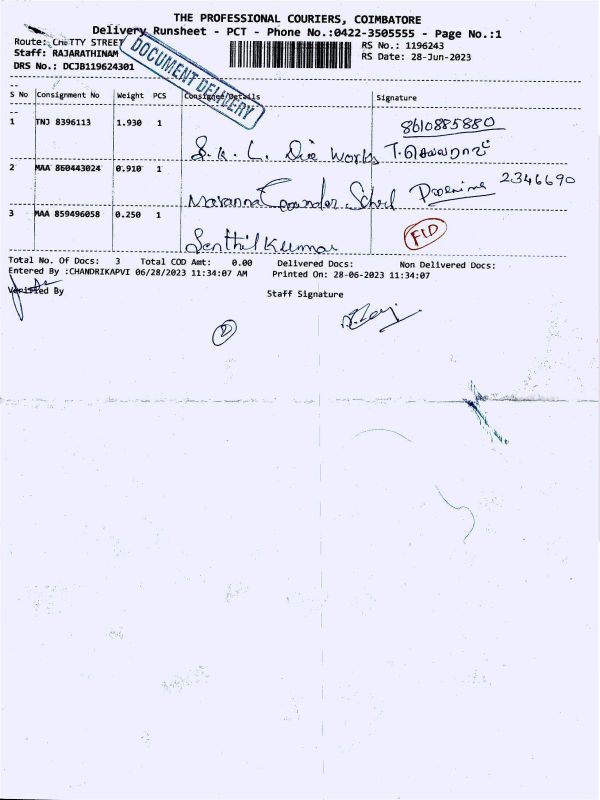 THE PROFESSIONAL COURIERS, COIMBATORE
Delivery Runsheet - PCT - Phone No.:0422-3505555 - Page No.:1
Route: CHETTY STREET
RS No.: 1196243
Staff: RAJARATHINAM
RS Date: 28-Jun-2023
DRS No.: DCJB119624301
DOCUMENT DELIVERY
S No Consignment No Weight PCS Consignee Details Signature
8610885880
1 TNJ 8396113 1.930 1
S.K.L. Die Works T.செல்வராஜ்
2 MAA 860443024 0.910 1
2346690
School
3 MAA 859496058 0.250 1
Senthil Kumar
Total No. Of Docs: 3 Total COD Amt: 0.00 Delivered Docs: Non Delivered Docs:
Entered By :CHANDRIKAPVI 06/28/2023 11:34:07 AM Printed On: 28-06-2023 11:34:07
Verified By
Staff Signature
2